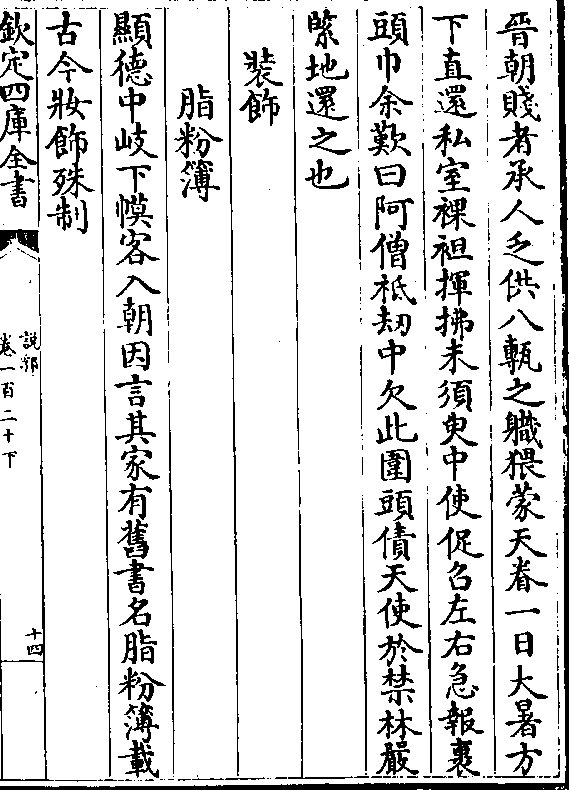 晉朝賤者承人乏供八甎之職猥蒙天眷一日大暑方
下直還私室裸袒揮拂未須臾中使促召左右急報裹
頭巾余歎曰阿僧祇劫中欠此圍頭債天使於禁林嚴
緊地還之也
裝飾
脂粉簿
顯德中岐下幙客入朝因言其家有舊書名脂粉簿載
古今妝飾殊制
欽定四庫全書
說郛
卷一百二十下
十四